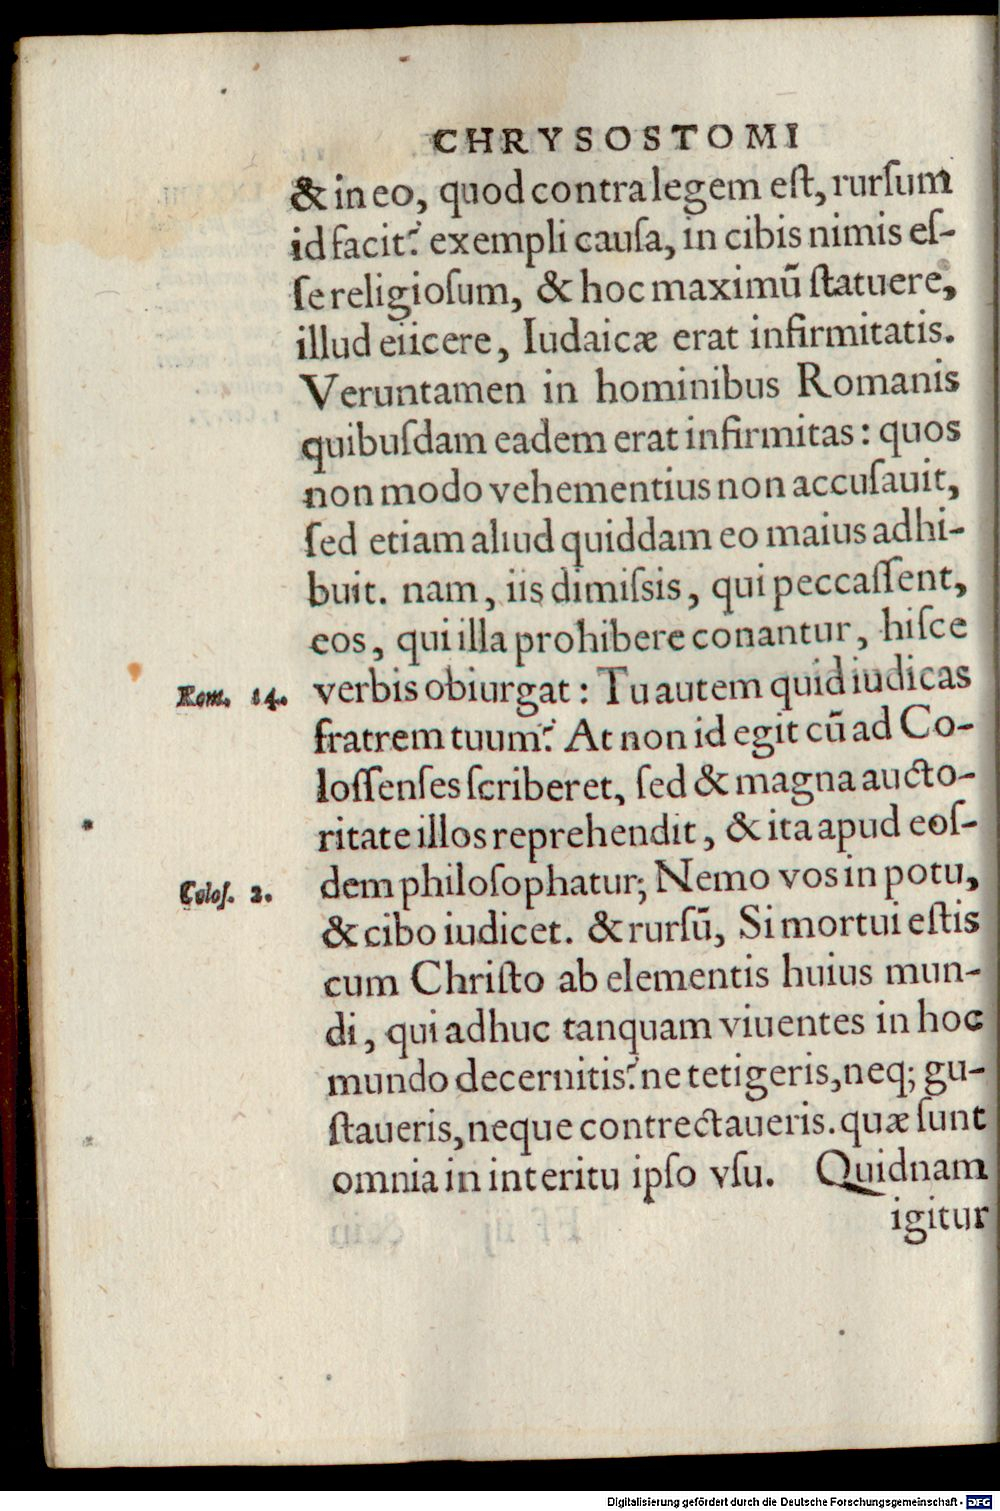 CHRYSOSTOMI
& in eo, quod contra legem eſt, rurſum
id facit? exempli cauſa, in cibis nimis eſ-
ſe religioſum, & hoc maximũ ſtatuere,
illud eiicere, Iudaicæ erat infirmitatis.
Veruntamen in hominibus Romanis
quibuſdam eadem erat infirmitas: quos
non modo vehementius non accuſauit,
ſed etiam aliud quiddam eo maius adhi-
buit. nam, iis dimiſsis, qui peccaſſent,
eos, qui illa prohibere conantur, hiſce
Rom. 14. verbis obiurgat: Tu autem quid iudicas
fratrem tuum? At non id egit cũ ad Co-
loſſenſes ſcriberet, ſed & magna aucto-
ritate illos reprehendit, & ita apud eoſ-
Coloſ. 2. dem philoſophatur; Nemo vos in potu,
& cibo iudicet. & rurſũ, Si mortui eſtis
cum Chriſto ab elementis huius mun-
di, qui adhuc tanquam viuentes in hoc
mundo decernitis? ne tetigeris, neq; gu-
ſtaueris, neque contrectaueris. quæ ſunt
omnia in interitu ipſo vſu. Quidnam
igitur
Digitalisierung gefördert durch die Deutsche Forschungsgemeinschaft - DFG